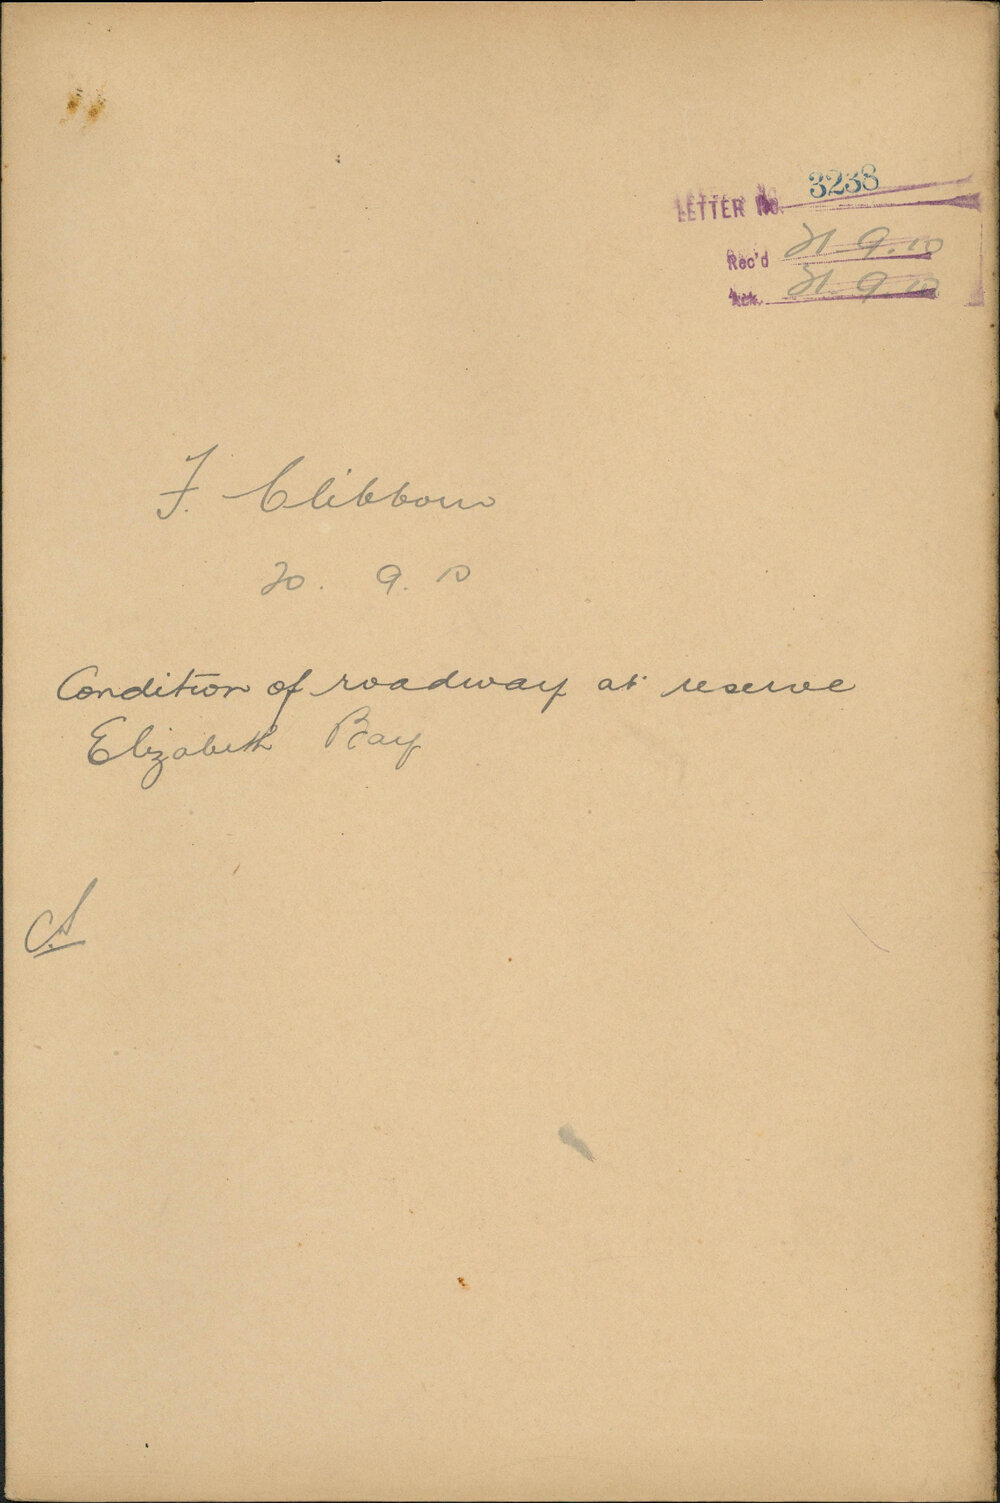 LETTER No. 3238
Rec'd 21.9.10
Ack. 21.9.10
F. Clibborn
20. 9. 10
Condition of roadway at reserve
Elizabeth Bay